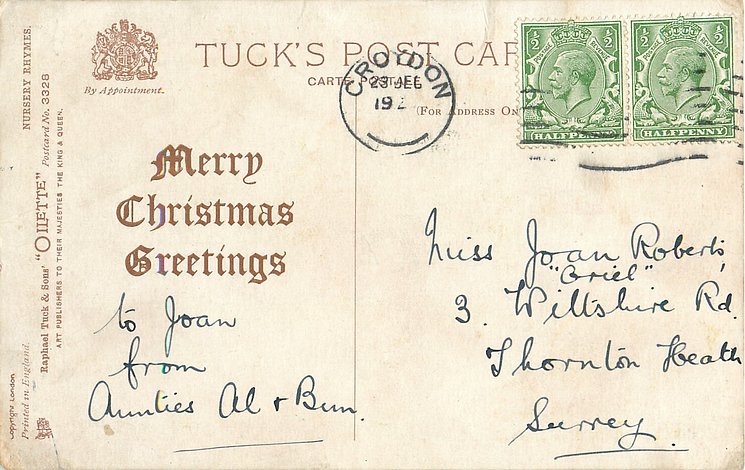 TUCK'S POST CAR
CARTE POSTALE
(FOR ADDRESS ON
By Appointment.
NURSERY RHYMES.
Raphael Tuck & Sons' "OILETTE" Postcard No. 3328
ART PUBLISHERS TO THEIR MAJESTIES THE KING & QUEEN.
Printed in England.
Copyright London
CROYDON
23 DEC
192
½ ½
POSTAGE REVENUE
HALFPENNY
½ ½
POSTAGE REVENUE
HALFPENNY
Merry
Christmas
Greetings
to Joan
from
Aunties Al & Bun.
Miss Joan Roberts
"Oriel"
3. Wiltshire Rd.
Thornton Heath
Surrey.